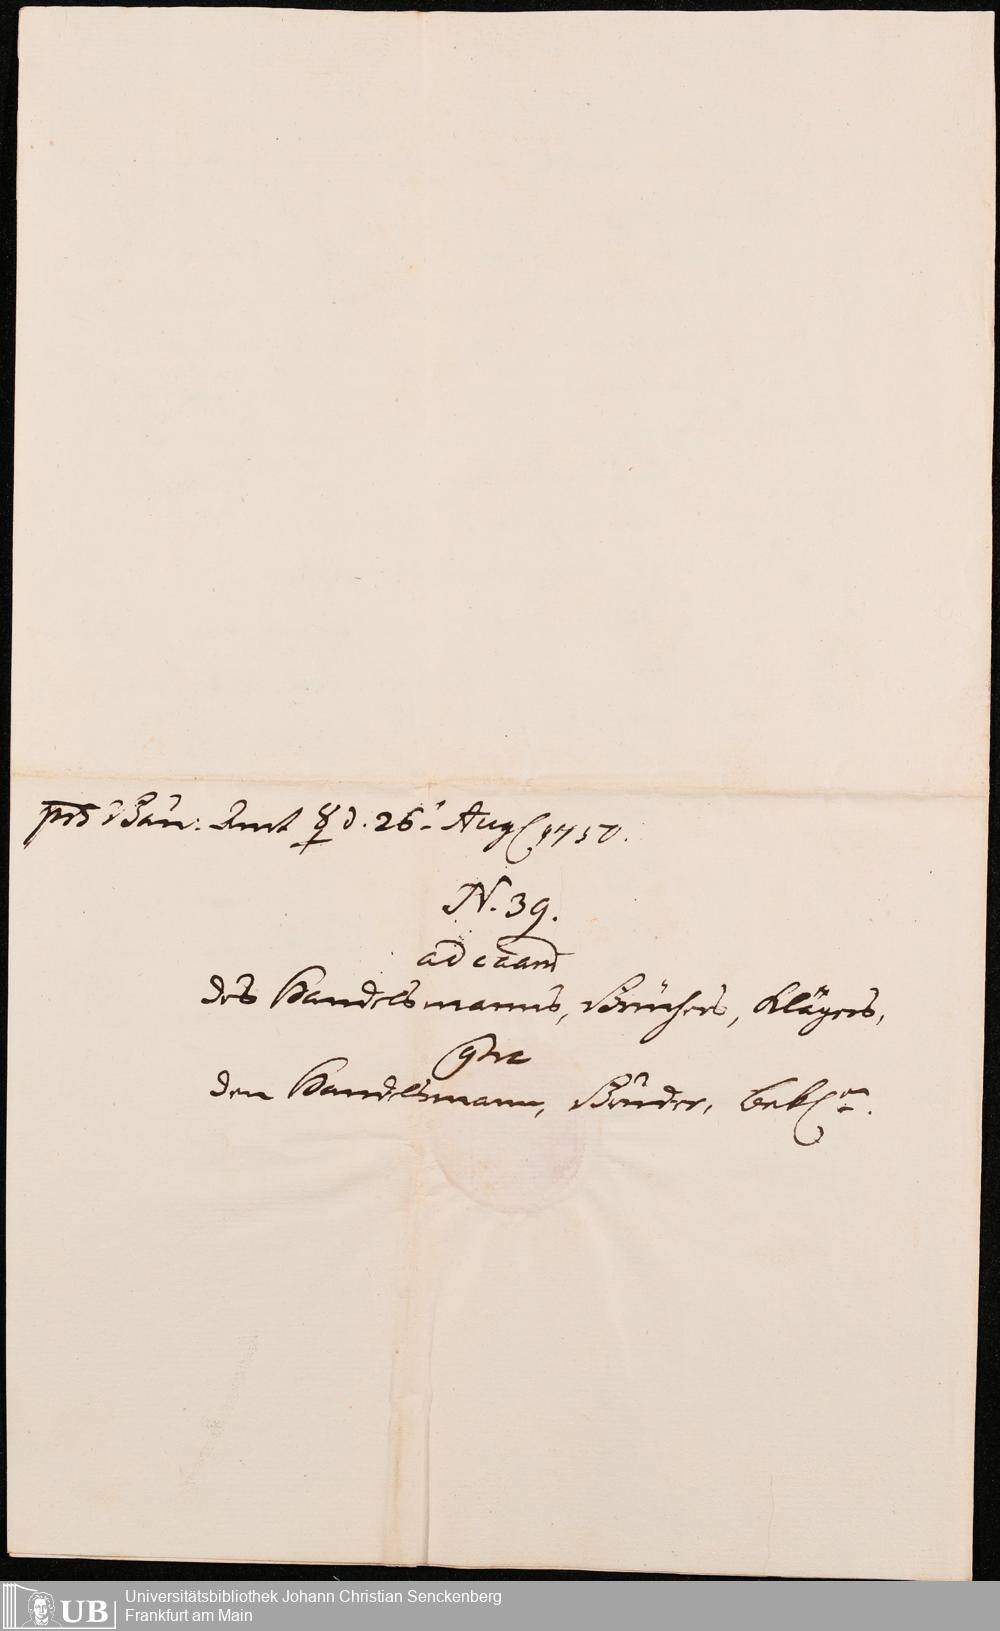 prs Bau: Amt ☿ d. 26.t Aug 1750.
N. 39.
ad caam
des Handelsmanns, Brüchers, Klägers,
gne
den Handelsmann, Bender, bekl.
UB
Universitätsbibliothek Johann Christian Senckenberg
Frankfurt am Main